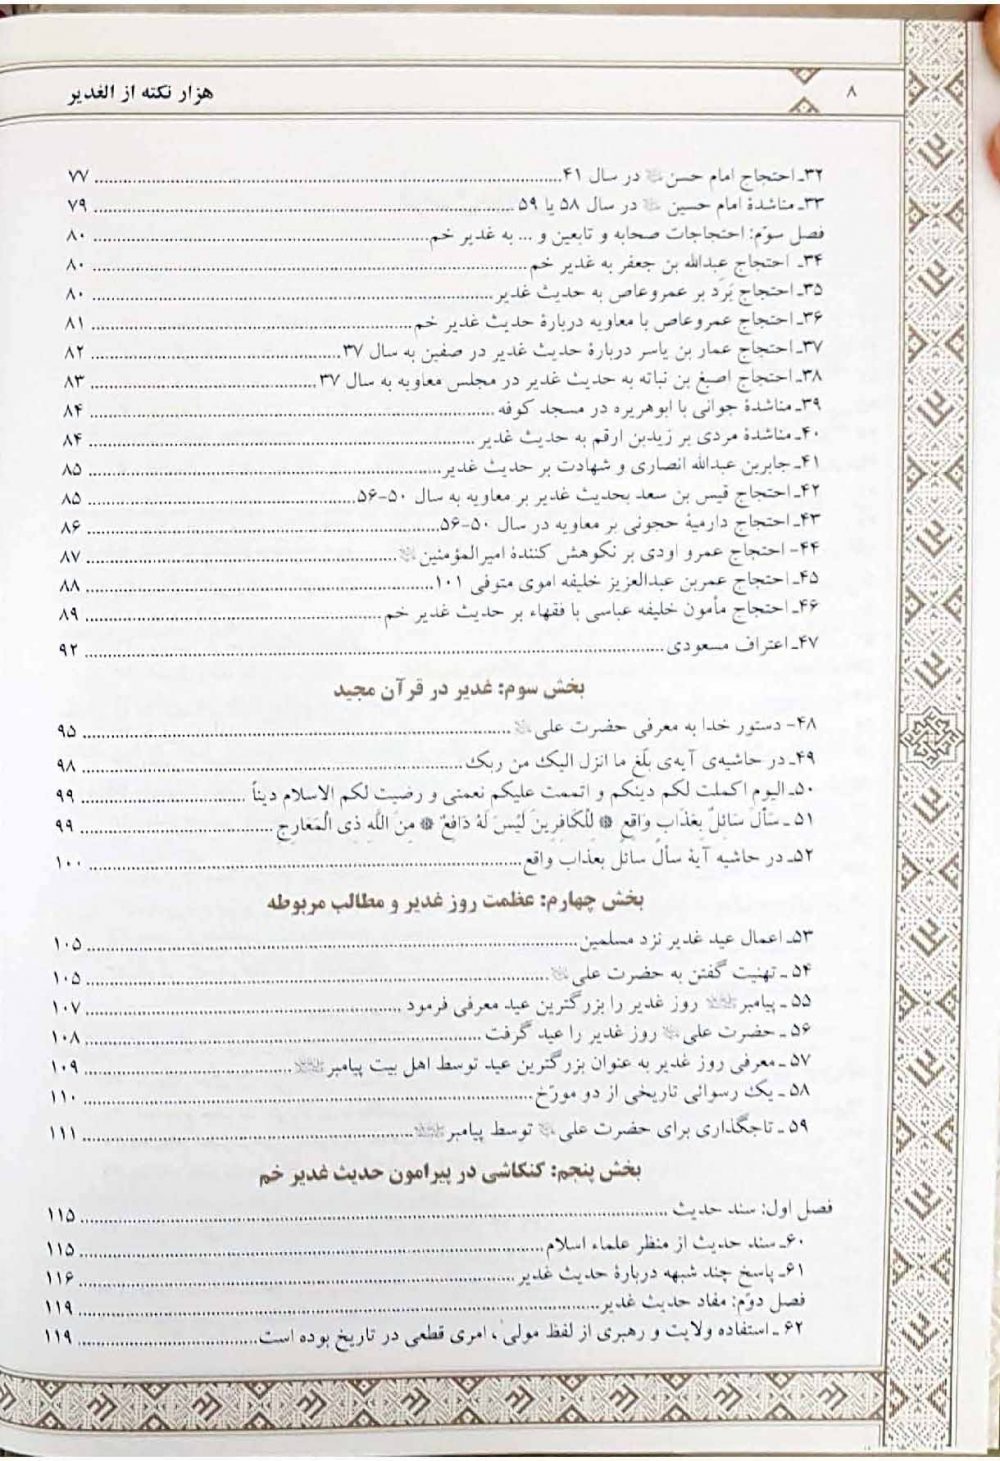 ۸
هزار نکته از الغدیر
۳۲ـ احتجاج امام حسن در سال ۴۱ ........ ۷۷
۳۳ـ مناشدۀ امام حسین در سال ۵۸ یا ۵۹ ........ ۷۹
فصل سوّم: احتجاجات صحابه و تابعین و ... به غدیر خم ........ ۸۰
۳۴ـ احتجاج عبدالله بن جعفر به غدیر خم ........ ۸۰
۳۵ـ احتجاج بَرَد بر عمروعاص به حدیث غدیر ........ ۸۰
۳۶ـ احتجاج عمروعاص با معاویه دربارۀ حدیث غدیر خم ........ ۸۱
۳۷ـ احتجاج عمار بن یاسر دربارۀ حدیث غدیر در صفین به سال ۳۷ ........ ۸۲
۳۸ـ احتجاج اصبغ بن نباته به حدیث غدیر در مجلس معاویه به سال ۳۷ ........ ۸۳
۳۹ـ مناشدۀ جوانی با ابوهریره در مسجد کوفه ........ ۸۴
۴۰ـ مناشدۀ مردی بر زیدبن ارقم به حدیث غدیر ........ ۸۴
۴۱ـ جابربن عبدالله انصاری و شهادت بر حدیث غدیر ........ ۸۵
۴۲ـ احتجاج قیس بن سعد بحدیث غدیر بر معاویه به سال ۵۰-۵۶ ........ ۸۵
۴۳ـ احتجاج دارمیۀ حجونی بر معاویه در سال ۵۰-۵۶ ........ ۸۶
۴۴- احتجاج عمرو اودی بر نکوهش کنندۀ امیرالمؤمنین ........ ۸۷
۴۵ـ احتجاج عمربن عبدالعزیز خلیفه اموی متوفی ۱۰۱ ........ ۸۸
۴۶ـ احتجاج مأمون خلیفه عباسی با فقهاء بر حدیث غدیر خم ........ ۸۹
۴۷ـ اعتراف مسعودی ........ ۹۲
بخش سوم: غدیر در قرآن مجید
۴۸- دستور خدا به معرفی حضرت علی ........ ۹۵
۴۹ـ در حاشیه‌ی آیه‌ی بلّغ ما انزل الیک من ربک ........ ۹۸
۵۰ـ الیوم اکملت لکم دینکم و اتممت علیکم نعمتی و رضیت لکم الاسلام دیناً ........ ۹۹
۵۱ ـ سَأَلَ سَائِلٌ بِعَذَابٍ وَاقِعٍ * لِّلْکَافِرِینَ لَیْسَ لَهُ دَافِعٌ * مِنَ اللَّهِ ذِی الْمَعَارِجِ ........ ۹۹
۵۲ـ در حاشیه آیۀ سأل سائل بعذاب واقع ........ ۱۰۰
بخش چهارم: عظمت روز غدیر و مطالب مربوطه
۵۳ـ اعمال عید غدیر نزد مسلمین ........ ۱۰۵
۵۴ ـ تهنیت گفتن به حضرت علی ........ ۱۰۵
۵۵ ـ پیامبر روز غدیر را بزرگترین عید معرفی فرمود ........ ۱۰۷
۵۶ ـ حضرت علی روز غدیر را عید گرفت ........ ۱۰۸
۵۷ ـ معرفی روز غدیر به عنوان بزرگترین عید توسط اهل بیت پیامبر ........ ۱۰۹
۵۸ ـ یک رسوائی تاریخی از دو مورّخ ........ ۱۱۰
۵۹ ـ تاجگذاری برای حضرت علی توسط پیامبر ........ ۱۱۱
بخش پنجم: کنکاشی در پیرامون حدیث غدیر خم
فصل اول: سند حدیث ........ ۱۱۵
۶۰ـ سند حدیث از منظر علماء اسلام ........ ۱۱۵
۶۱ـ پاسخ چند شبهه دربارۀ حدیث غدیر ........ ۱۱۶
فصل دوّم: مفاد حدیث غدیر ........ ۱۱۹
۶۲ ـ استفاده ولایت و رهبری از لفظ مولی، امری قطعی در تاریخ بوده است ........ ۱۱۹